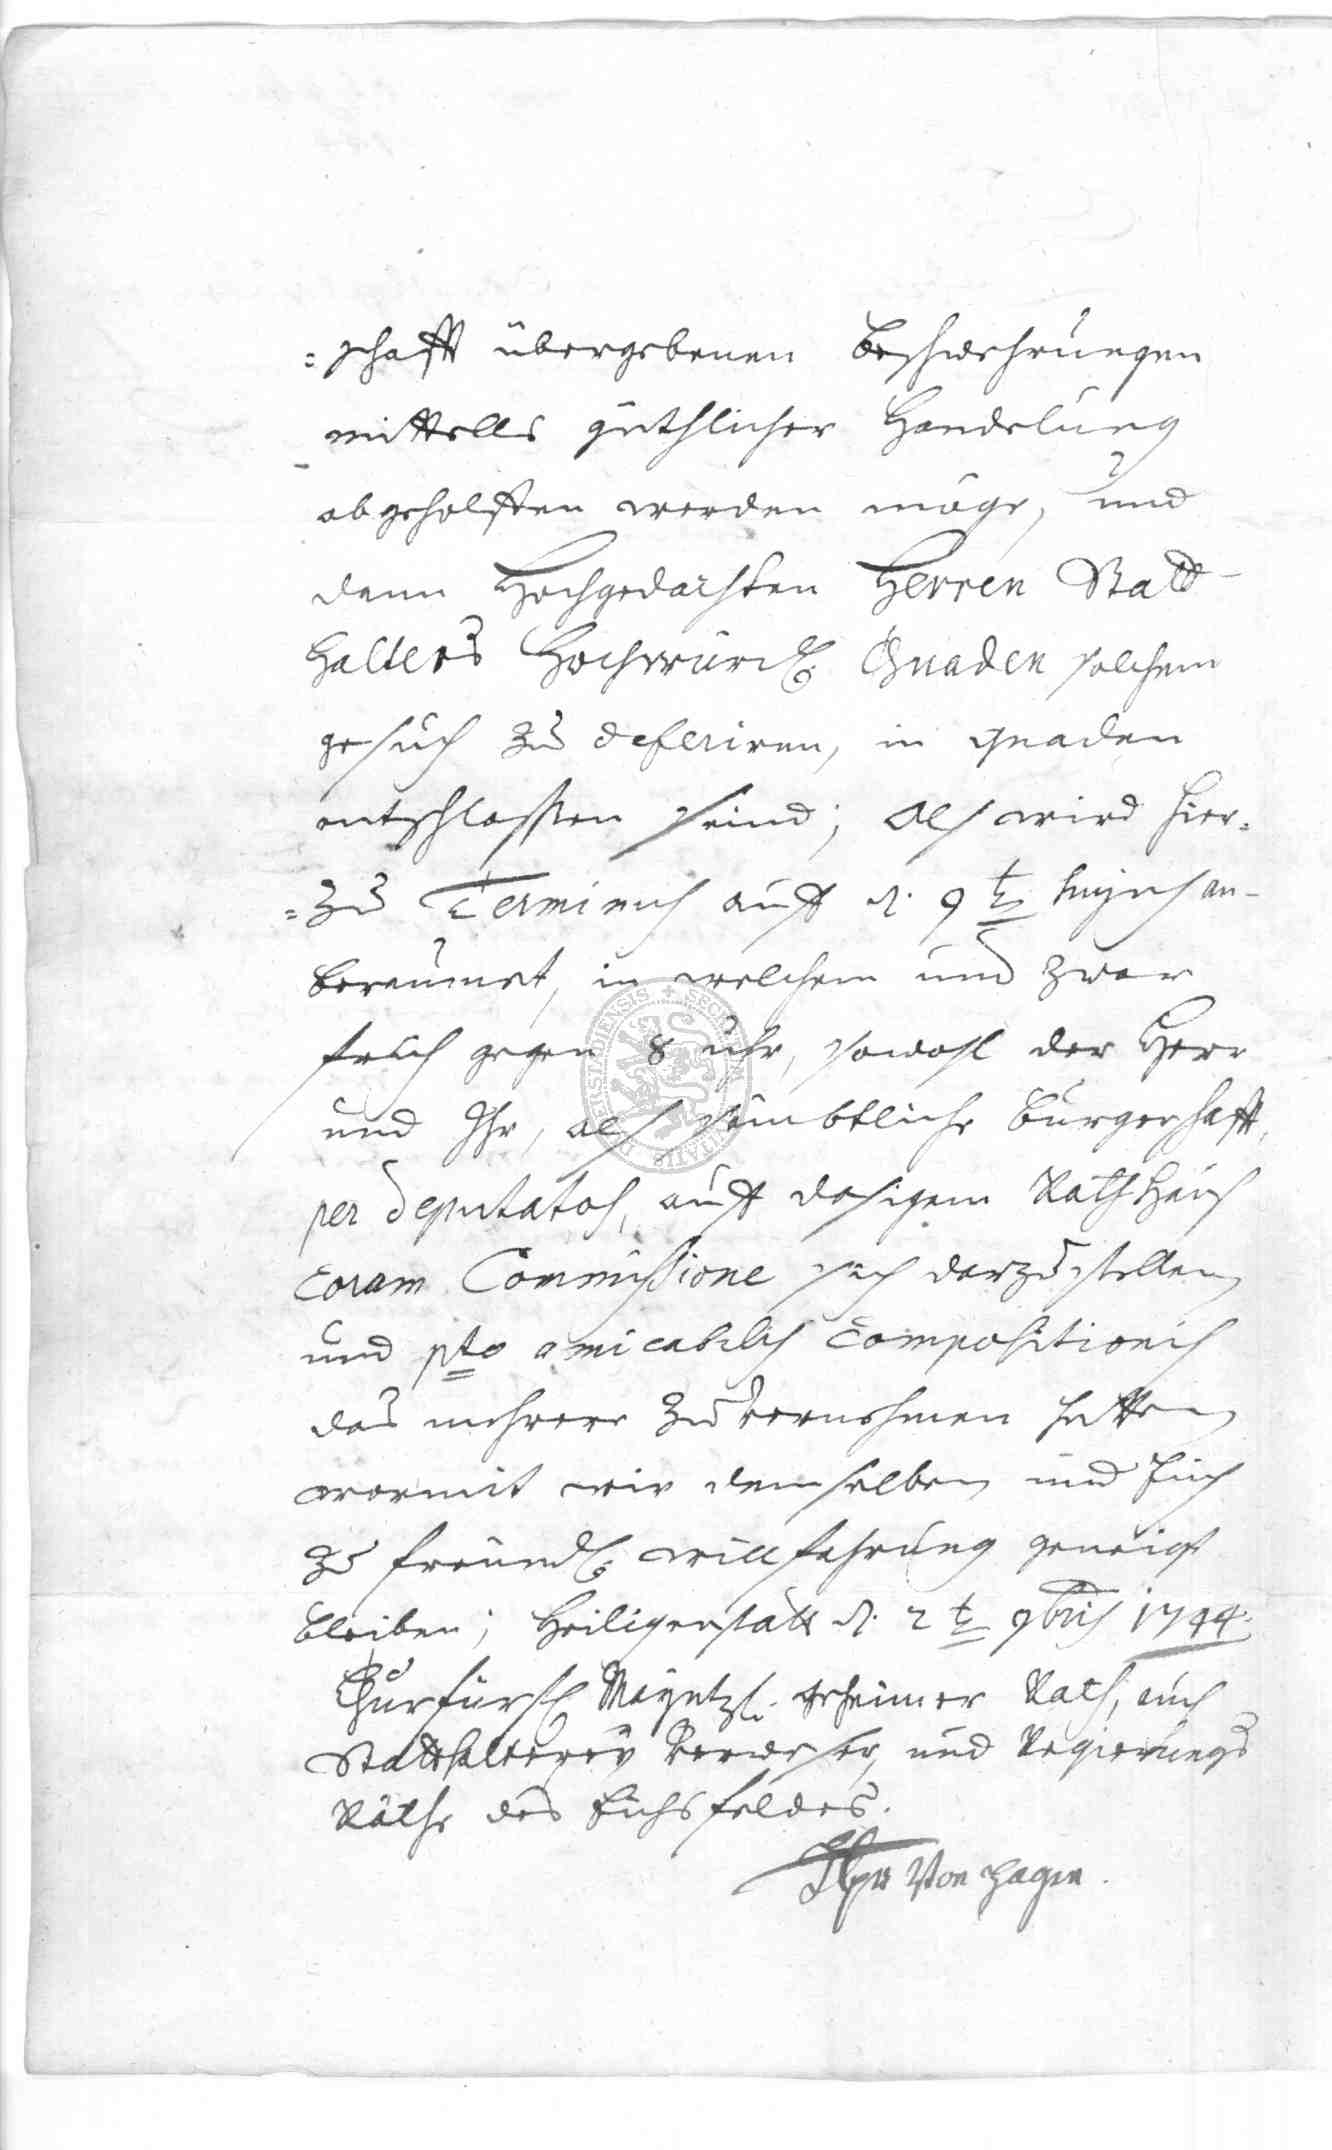 =schafft übergebenen Beschwehrungen
mittells güthlicher Handelung
abgeholffen werden möge, und
dann Hochgedachten Herren Statt-
halters Hochwürd. Gnaden solchem
gesuch zu deferiren, in gnaden
entschlossen seind; Als wird hier=
=zu Terminus auff d. 9t. hujus an-
beraumet, in welchem und zwar
früh gegen 8 uhr, sowohl der Herr
und Ihr, als sämbtliche Bürgerschafft,
per Deputatos, auff dasigem Rathhaus
coram Commissione sich darzustellen,
und pto amicabilis compositionis
das mehrere zu vernehmen hatten,
wormit wir demselben und Euch
zu freundl. willfahrung geneigt
bleiben; Heiligenstatt d. 2t. 9bris 1744.
Churfürstl. Mayntzl. geheimer Rath, auch
Statthalterey Verweser, und Regierungs
Räthe des Eichsfeldes.
von Hagen.